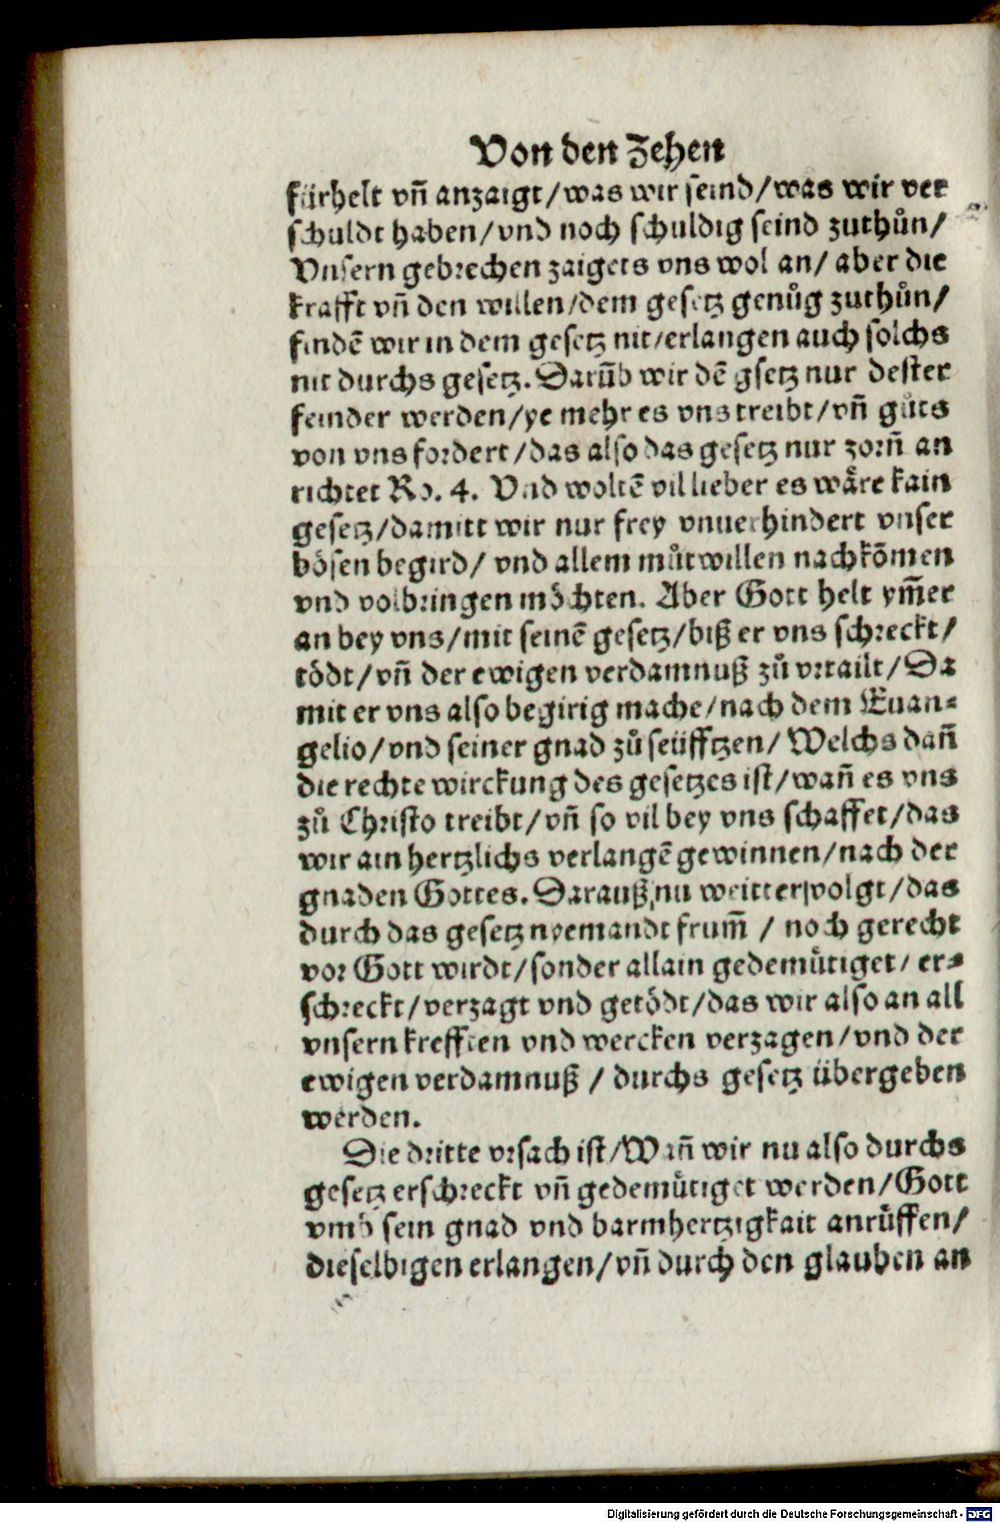 Von den Zehen
fürhelt vñ anzaigt/was wir seind/was wir ver
schuldt haben/vnd noch schuldig seind zuthůn/
Vnsern gebrechen zaigets vns wol an/ aber die
krafft vñ den willen/dem gesetz genůg zuthůn/
findẽ wir in dem gesetz nit/erlangen auch solchs
nit durchs gesetz. Darũb wir dẽ gsetz nur dester
feinder werden/ye mehr es vns treibt/vñ gůts
von vns fordert/das also das gesetz nur zorñ an
richtet Ro. 4. Vnd woltẽ vil lieber es wåre kain
gesetz/damitt wir nur frey vnuerhindert vnser
bösen begird/ vnd allem můtwillen nachkõmen
vnd volbringen möchten. Aber Gott helt ym̃er
an bey vns/mit seinẽ gesetz/biß er vns schreckt/
tödt/vñ der ewigen verdamnuß zů vrtailt/Da
mit er vns also begirig mache/nach dem Euan⸗
gelio/vnd seiner gnad zů seüfftzen/ Welchs dañ
die rechte wirckung des gesetzes ist/wañ es vns
zů Christo treibt/vñ so vil bey vns schaffet/das
wir ain hertzlichs verlangẽ gewinnen/nach der
gnaden Gottes. Darauß nu weitter volgt/das
durch das gesetz nyemandt frum̃ / noch gerecht
vor Gott wirdt/sonder allain gedemůtiget/ er⸗
schreckt/verzagt vnd getödt/das wir also an all
vnsern krefften vnd wercken verzagen/vnd der
ewigen verdamnuß / durchs gesetz übergeben
werden.
Die dritte vrsach ist/Wañ wir nu also durchs
gesetz erschreckt vñ gedemůtiget werden/Gott
vmb sein gnad vnd barmhertzigkait anrůffen/
dieselbigen erlangen/vñ durch den glauben an
Digitalisierung gefördert durch die Deutsche Forschungsgemeinschaft - DFG